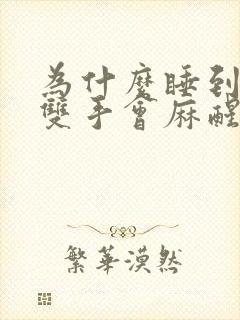 為什麼睡到
雙手會麻醒
繁華漠然